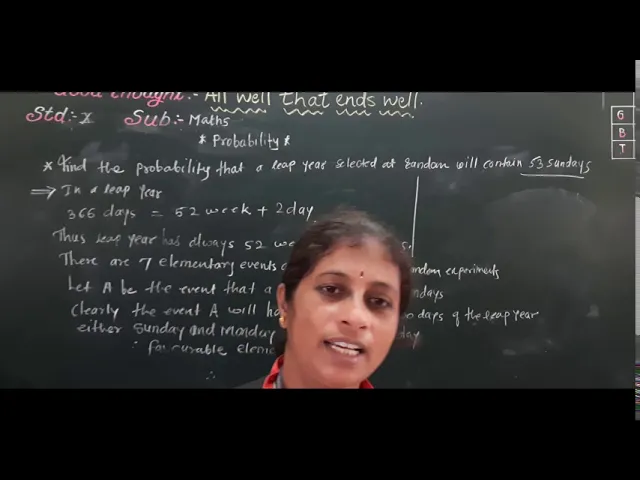 Good thought:- All well that ends well.
Std:- X Sub:- Maths
* Probability *
* Find the probability that a leap year selected at random will contain 53 sundays
⇒ In a leap year
366 days = 52 week + 2 day
Thus leap year has always 52
There are 7 elementary events random experiments
Let A be the event that a
Clearly the event A will days of the leap year
either Sunday and Monday
∴ favourable
∴
G
B
T